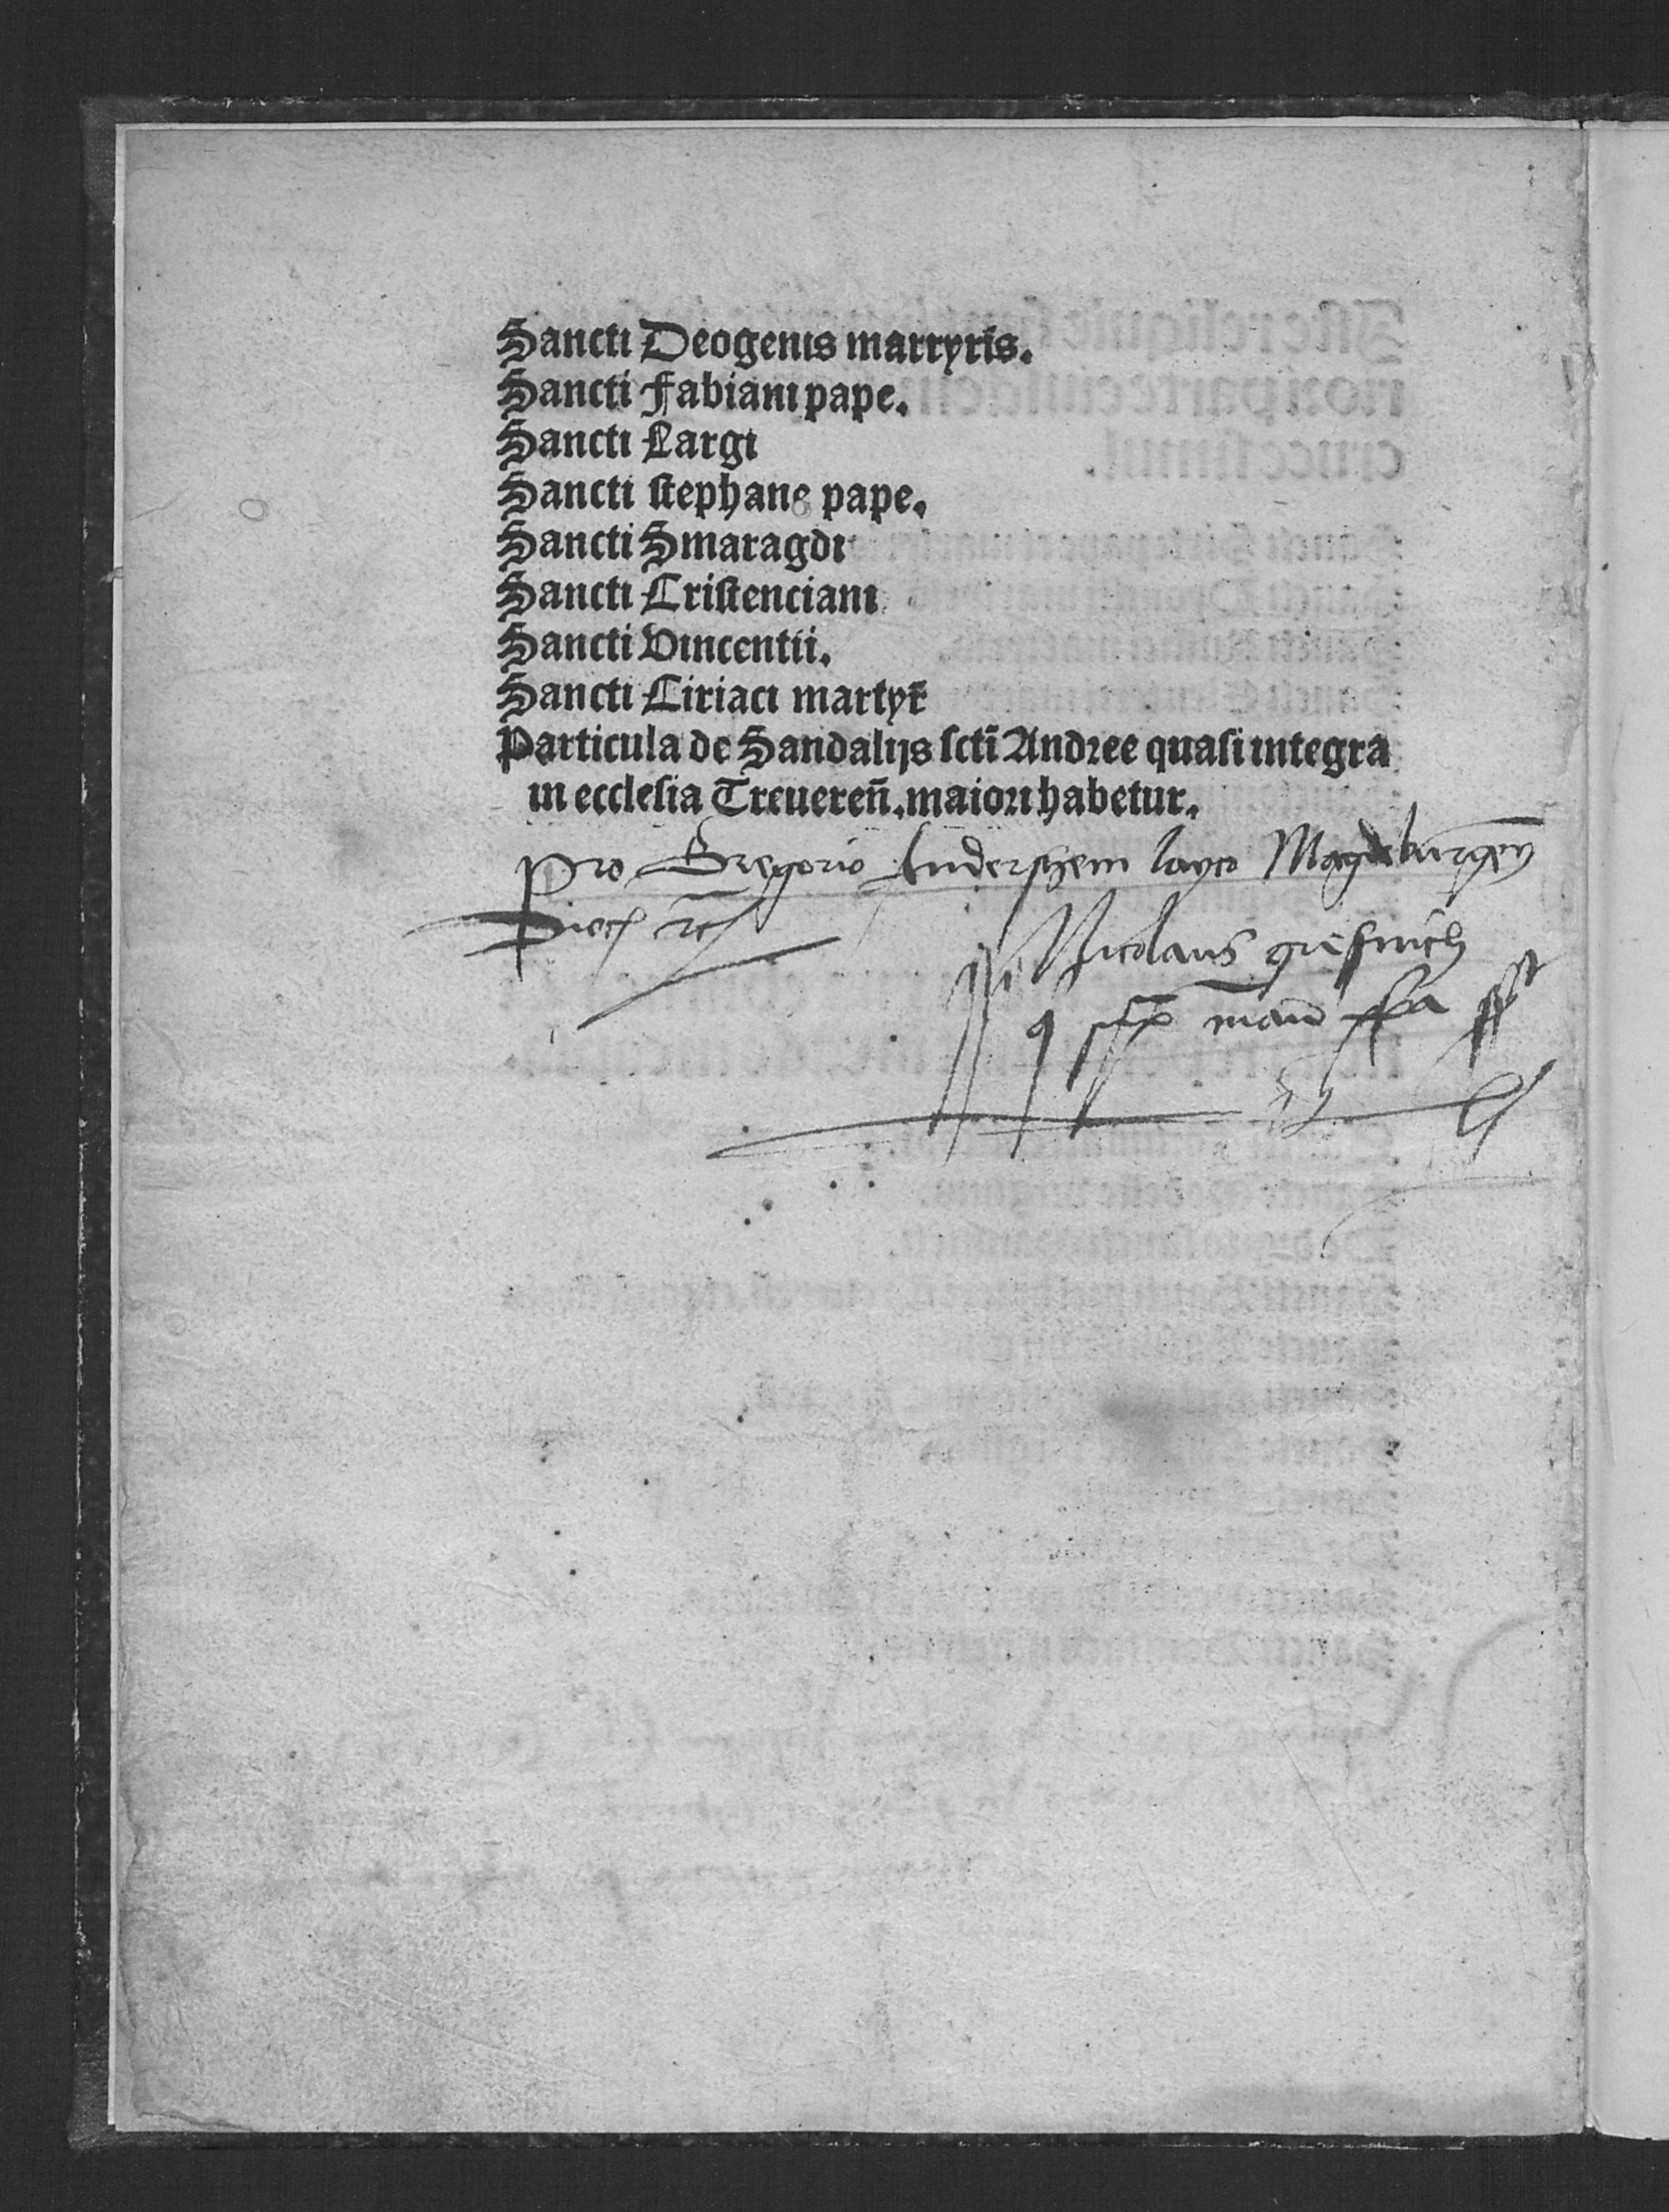 Sancti Deogenis martyris.
Sancti Fabiani pape.
Sancti Largi
Sancti stephane pape.
Sancti Smaragdi
Sancti Cristenciani
Sancti Vincentii.
Sancti Ciriaci martyr̃
Particula de Sandalijs scti̅ Andree quasi integra
in ecclesia Treueren̄. maiori habetur.
Pro Gregorio layco Magdeburgen̄
Nicolaus